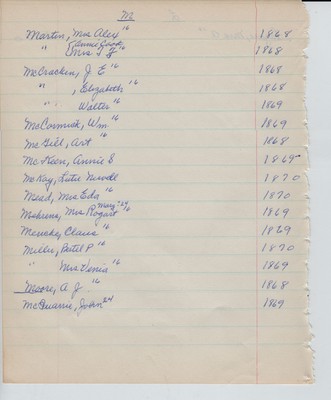 M
Martin, Mrs Alex 16 1868
" {Annie Cook 16
Mrs J F 1868
McCracken, J E 16 1868
" , Elizabeth 16 1868
" Walter 16 1869
McCormick, Wm 16 1869
McGill, Art 16 1868
McKeen, Annie E 1869
McKay, Lutie 1870
Mead, Mrs Eda 16 1870
Mrs Rogart 16 Mary '24 1869
Mencke, Claus 16 1869
Miller, P 16 1870
" Mrs 16 1869
Moore, A J. 16 1868
McQuarrie, John 24 1869